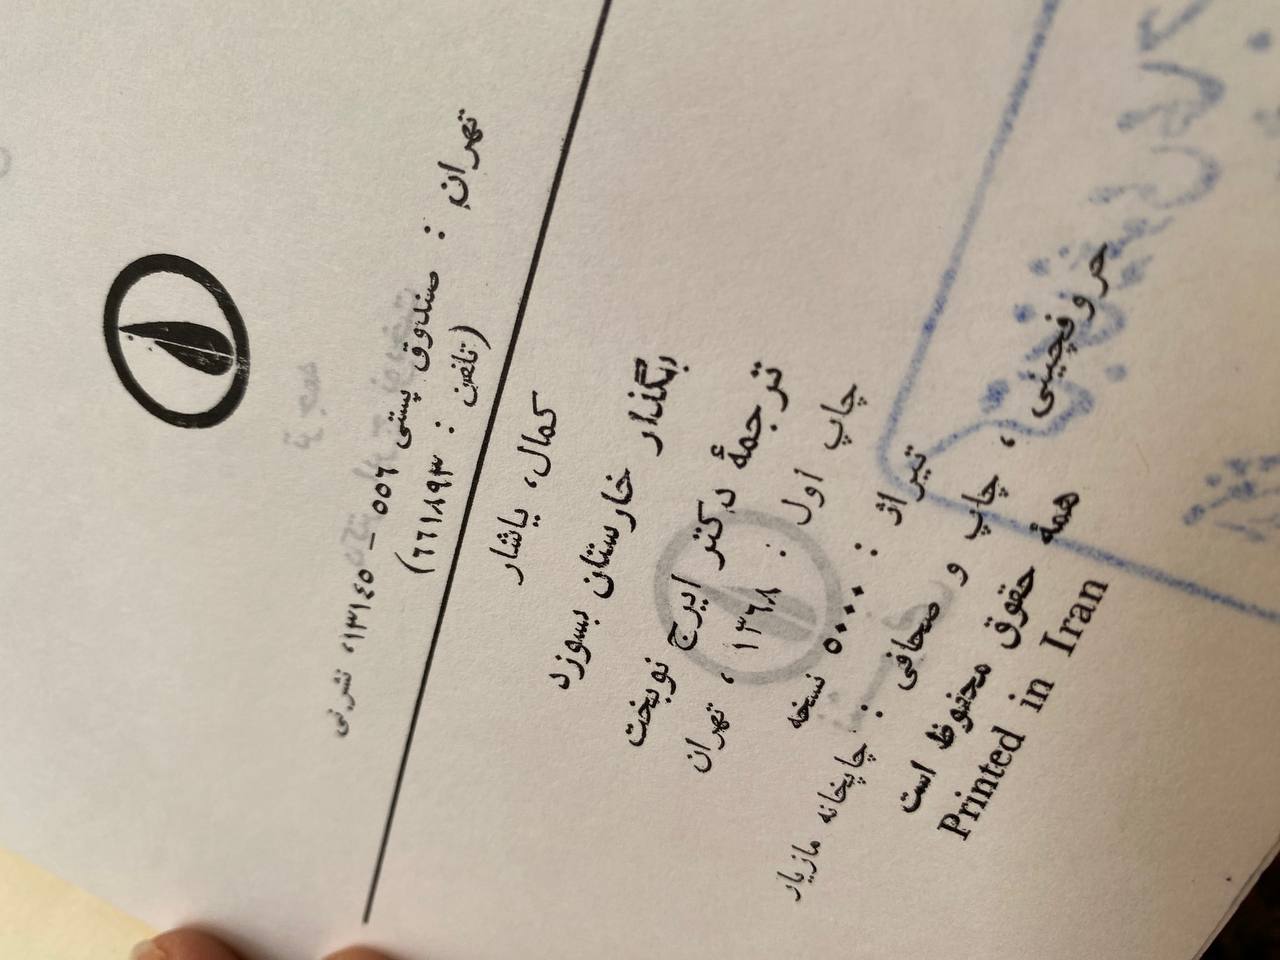 تهران: صندوق پستی ۵۵۶ـ۱۳۱۴۵، نشر نی
(تلفن: ۶۶۱۸۹۳)
کمال، یاشار
بگذار خارستان بسوزد
ترجمهٔ دکتر ایرج نوبخت
چاپ اول: ۱۳۶۸، تهران
تیراژ: ۵۰۰۰ نسخه
حروفچینی، چاپ و صحافی: چاپخانه مازیار
همهٔ حقوق محفوظ است
Printed in Iran